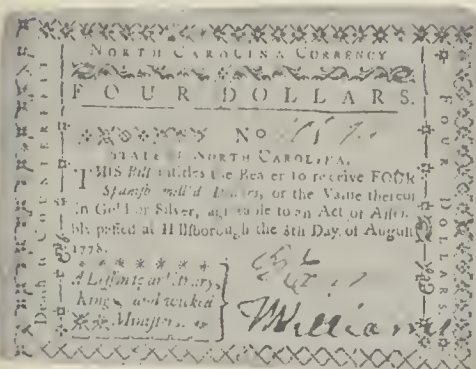 NORTH CAROLINA CURRENCY
FOUR DOLLARS.
No
STATE OF NORTH CAROLINA.
THIS Bill entitles the Bearer to receive FOUR
Spanish mill'd Dollars, or the Value thereof
in Gold or Silver, agreeable to an Act of Assem
bly passed at Hillsborough the 8th Day of August
1778.
Kings and wicked
Ministers
Williams
Death to Counterfeit
FOUR DOLLARS.